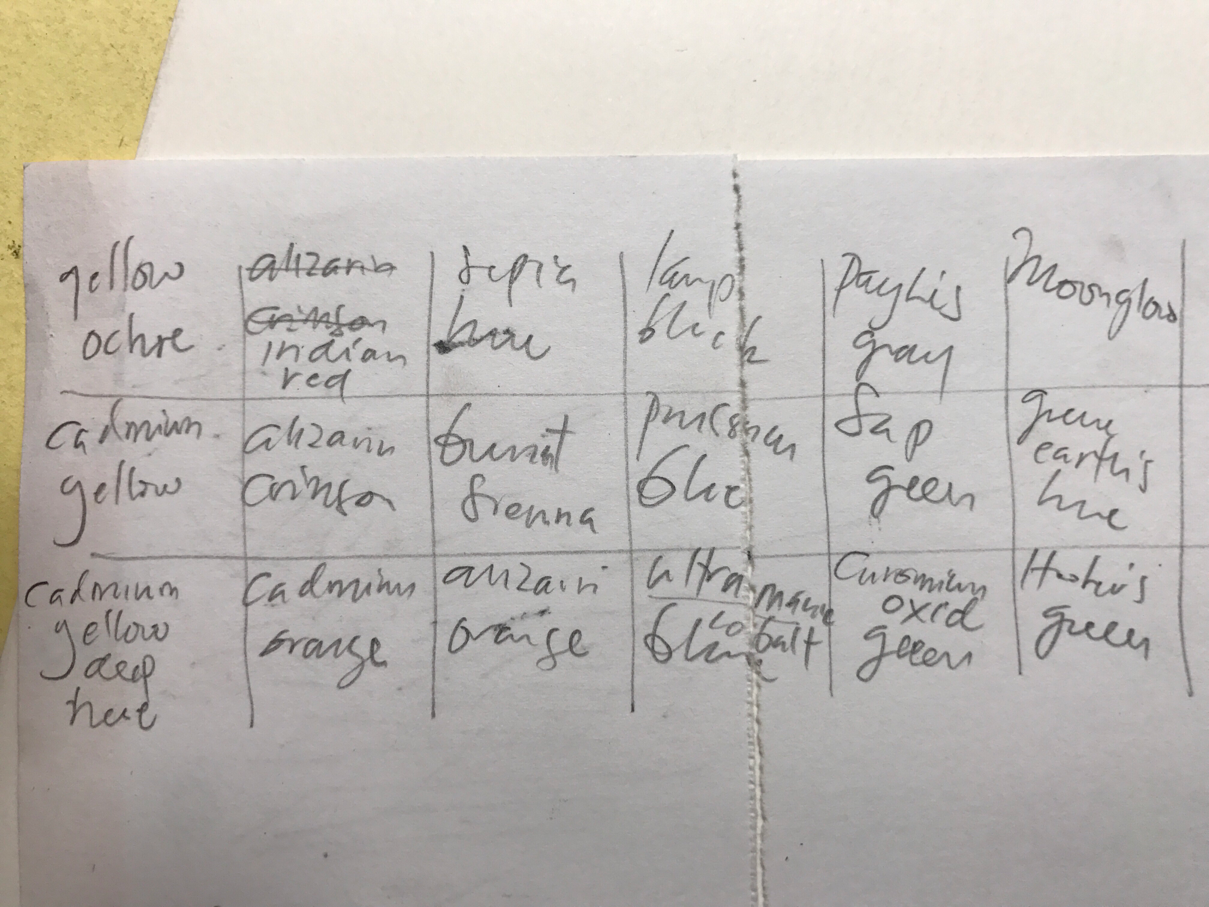 yellow
ochre
alizarin
crimson
indian
red
sepia
hue
lamp
black
Payn's
gray
Moonglow
cadmium
yellow
alizarin
crimson
burnt
sienna
prussian
blue
Sap
green
green
earth's
hue
cadmium
yellow
deep
hue
Cadmium
orange
alizarin
orange
ultra marine
cobalt
blue
Cromium
oxid
green
Hooker's
green